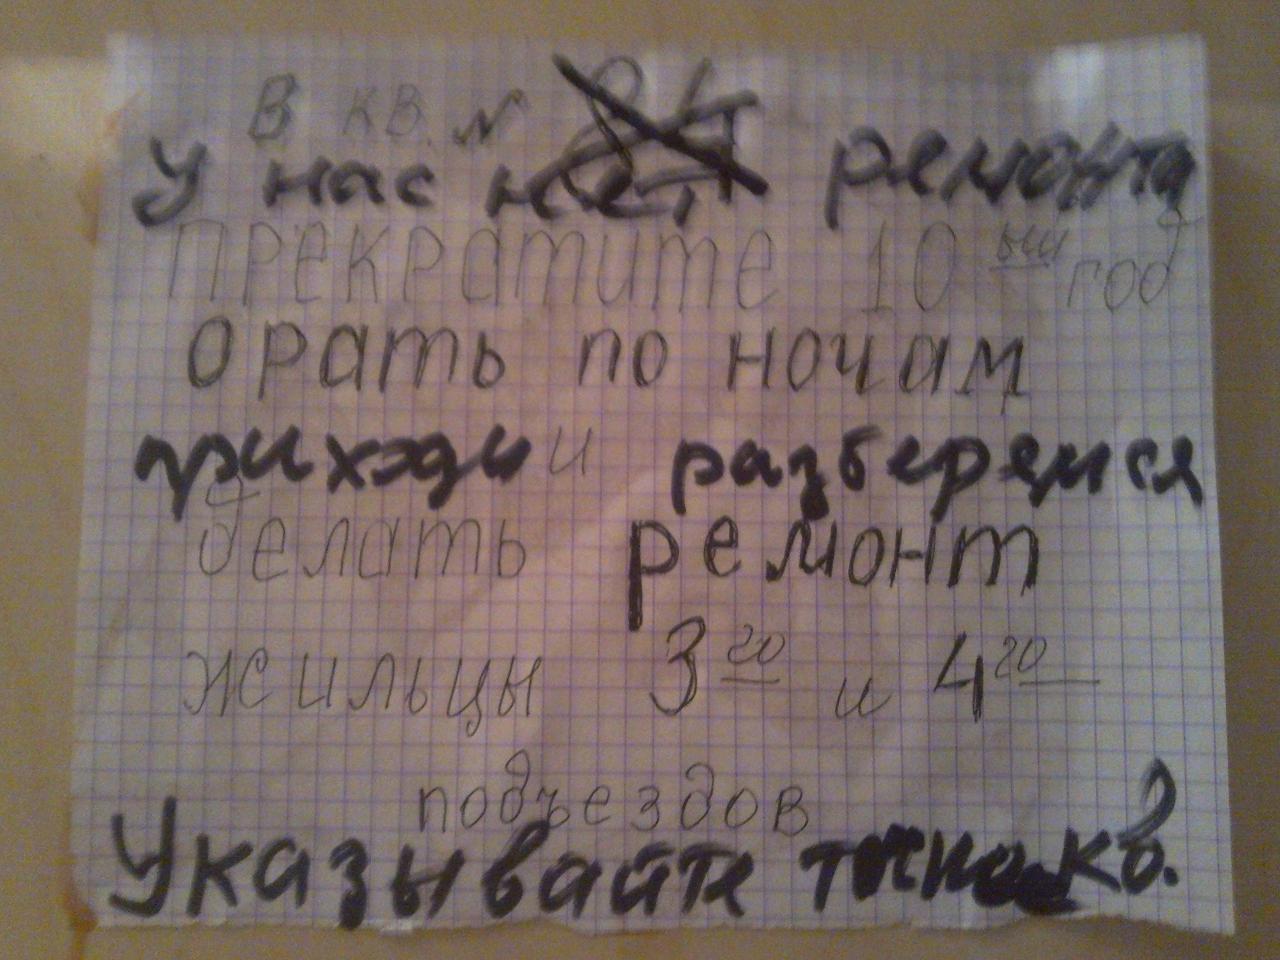 В кв. №
у нас нет ремонта
прекратите 10ый год
орать по ночам
приходи и разберемся
делать ремонт
жильцы 3го и 4го
подъездов
Указывайте точно кв.